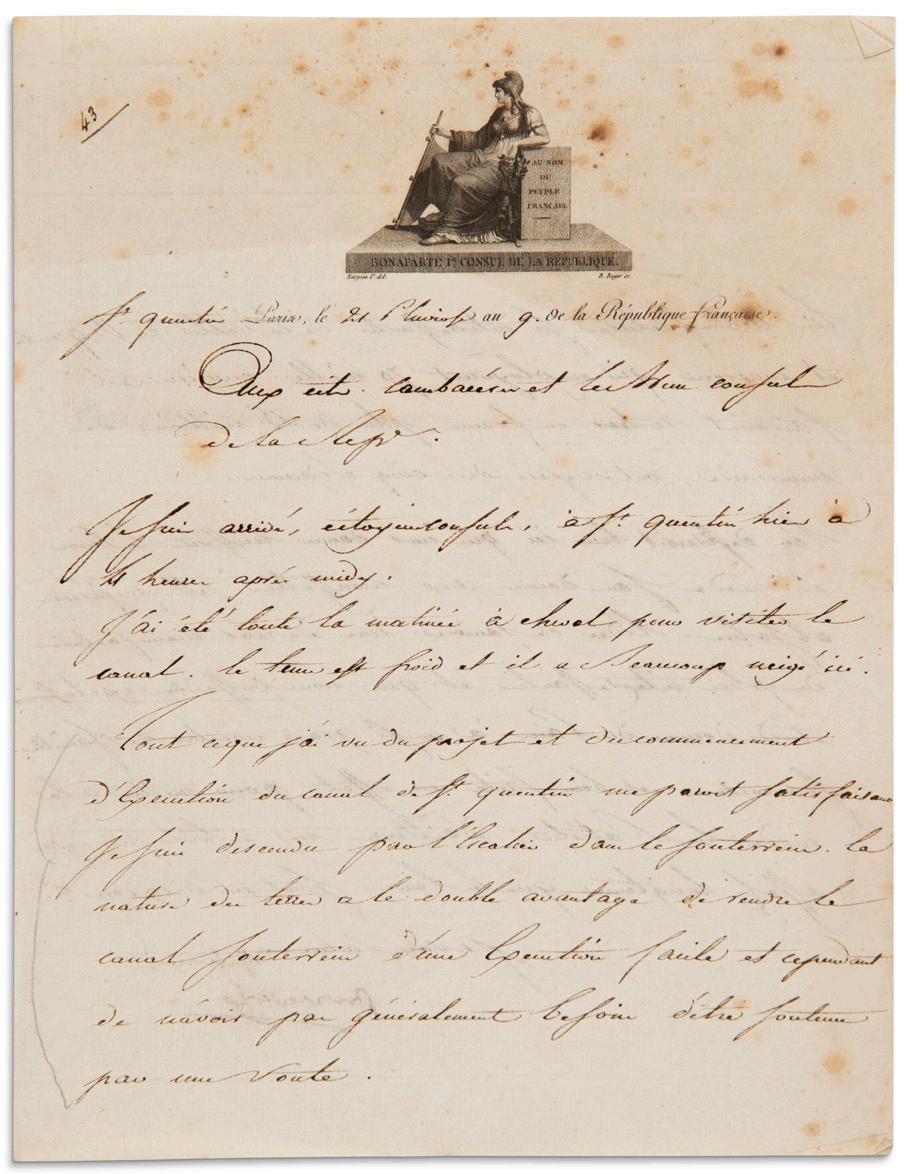 43
AU NOM
DU
PEUPLE
FRANÇAIS
BONAPARTE 1er CONSUL DE LA RÉPUBLIQUE.
Naigeon del. B. Roger sc.
St quentin Paris, le 21 Pluviose an 9. de la République française.
Aux cit. Cambacérès et le Brun consuls
de la Repe.
Je suis arrivé, citoyens consuls, à St quentin hier à
4 heures après midy.
J'ai été toute la matinée à cheval pour visiter le
canal. le tems est froid et il a Beaucoup neigé ici.
Tout ce que j'ai vu du projet et du commencement
d'Execution du canal de St quentin me paroit satisfaisant
Je suis descendu par l'Escalier dans le souterrein. la
nature du terrein a le double avantage de rendre le
canal souterrein d'une Execution facile et cependant
de n'avoir pas généralement besoin d'être soutenu
par une voute.